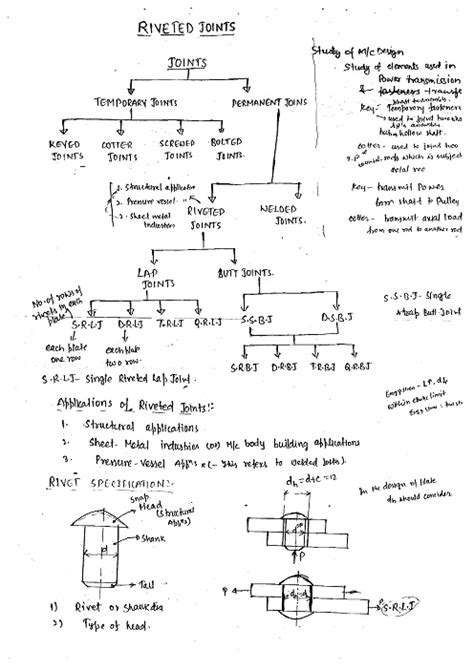 RIVETED JOINTS
JOINTS
TEMPORARY JOINTS
PERMANENT JOINS
KEYED JOINTS
COTTER JOINTS
SCREWED JOINTS
BOLTED JOINTS.
1. Structural application
2. Pressure vessel
3. Sheet metal
Industries
RIVETED JOINTS
WELDED JOINTS.
LAP JOINTS
BUTT JOINTS.
No. of rows of
rivets in each
plate
S.R.L.J
D.R.L.J
T.R.L.J
Q.R.L.J
S.S.B.J
D.S.B.J
each plate
one row
each plate
two row.
S.R.B.J
D.R.B.J
T.R.B.J
Q.R.B.J
S.R.L.J- Single Riveted Lap Joint.
Applications of Riveted Joints:-
1. Structural applications
2. Sheet-Metal industries (or) M/c body building applications
3. Pressure-Vessel Appns (- This refers to Welded Joints).
RIVET SPECIFICATION:-
Snap
Head
(structural
Appns)
Shank
d
Tail
1) Rivet or Shank dia
2) Type of head.
P
P
P
S.R.L.J
Study of M/C Design
Study of elements used in
Power transmission
& fasteners-transfer
Key- Temporary fasteners
hollow shaft.
cotter- used to joint two
rods which is subject
axial
Key- transmit Power
from shaft to Pulley
cotter- transmit axial load
from one rod to another rod
S.S.B.J- Single
strap Butt Joint
In the design of plate
dh should consider